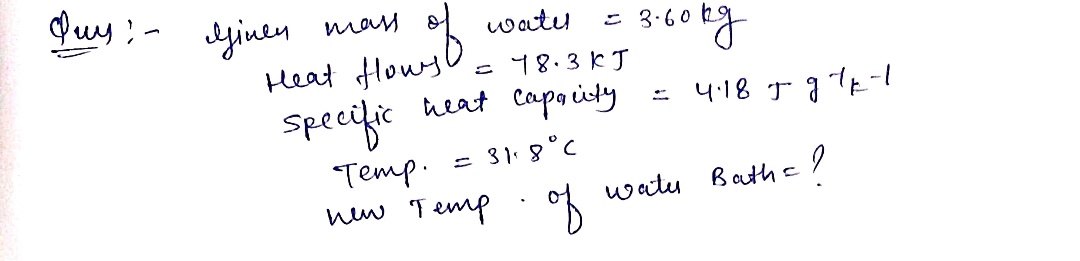 Ques :- Given mass of water = 3.60 kg
Heat flows = 78.3 kJ
Specific heat capacity = 4.18 J g⁻¹ k⁻¹
Temp. = 31.8°C
new Temp. of water Bath = ?